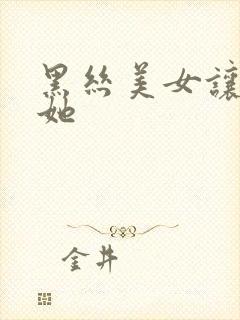 黑丝美女讓
她
金井